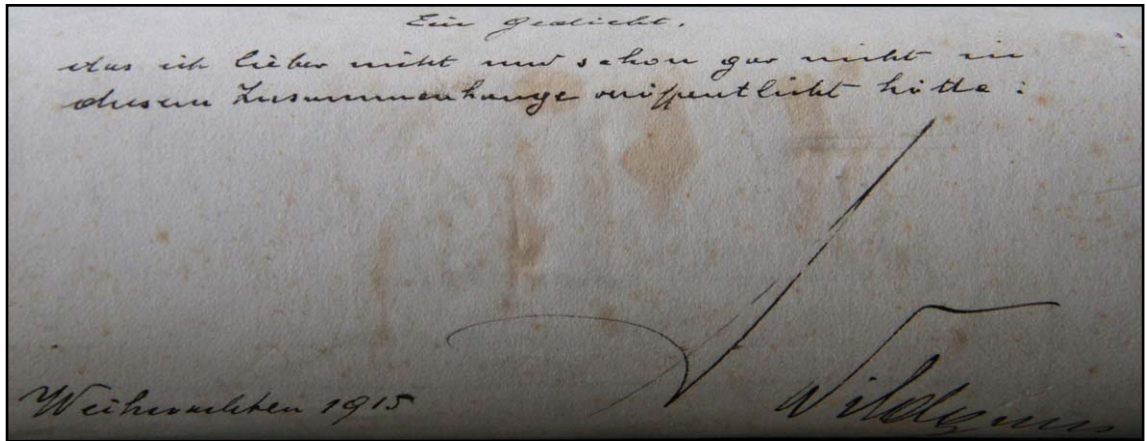 Ein Gedicht,
das ich lieber nicht und schon gar nicht in
diesem Zusammenhange veröffentlicht hätte:
Weihnachten 1915
Wildgans